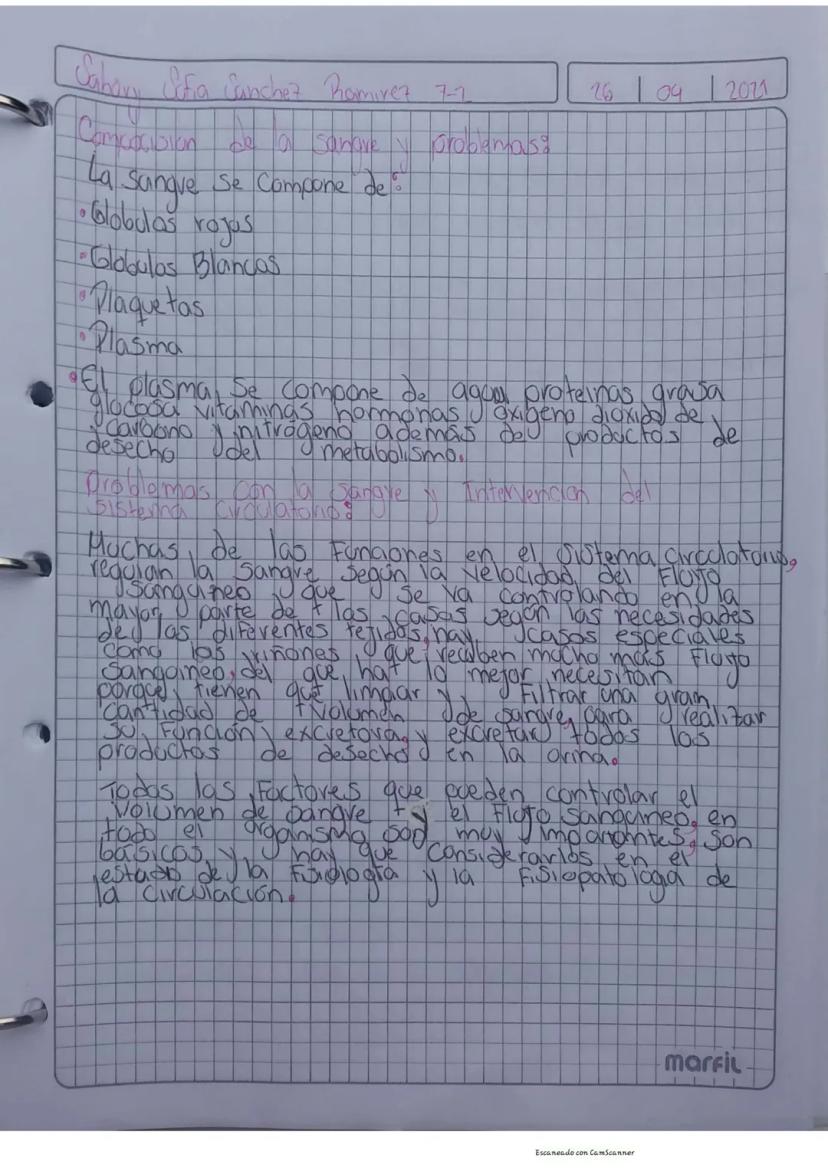 Sahary Sofia Sanchez Ramirez 7-2
26 | 04 | 2021
Composición de la sangre y problemas:
La Sangre Se Compone de:
• Globulos rojos
• Globulos Blancos
• Plaquetas
• Plasma
• El plasma, Se compone de agua, proteinas grasa
glocosa vitaminas hormonas y oxigeno dioxido de
carbono y nitrógeno además de productos de
desecho del metabolismo.
Problemas con la sangre y Intervención del
Sistema circulatorio:
Muchas, de las Funciones en el Sistema circulatorio,
regulan la Sangre Según la Velocidad, del Flujo
Sanguineo y que se va controlando en la
mayor parte de las casos según las necesidades
de las diferentes tejidos, hay casos especiales
como los riñones, que reciben mucho más Flujo
Sanguineo, del que, ha lo mejor necesitan
porque, tienen que limpiar y Filtrar una gran
cantidad de Volumen de sangre, para realizar
su, Función, excretora, y excretar todos los
productos de desecho en la orina.
Todos las Factores que pueden controlar el
Volumen de sangre y el Flujo Sanguineo, en
todo el organismo son muy importantes, son
básicos y hay que considerarlos en el
estado de la Fisiología y la Fisiopatología de
la Circulación.
marfil
Escaneado con CamScanner